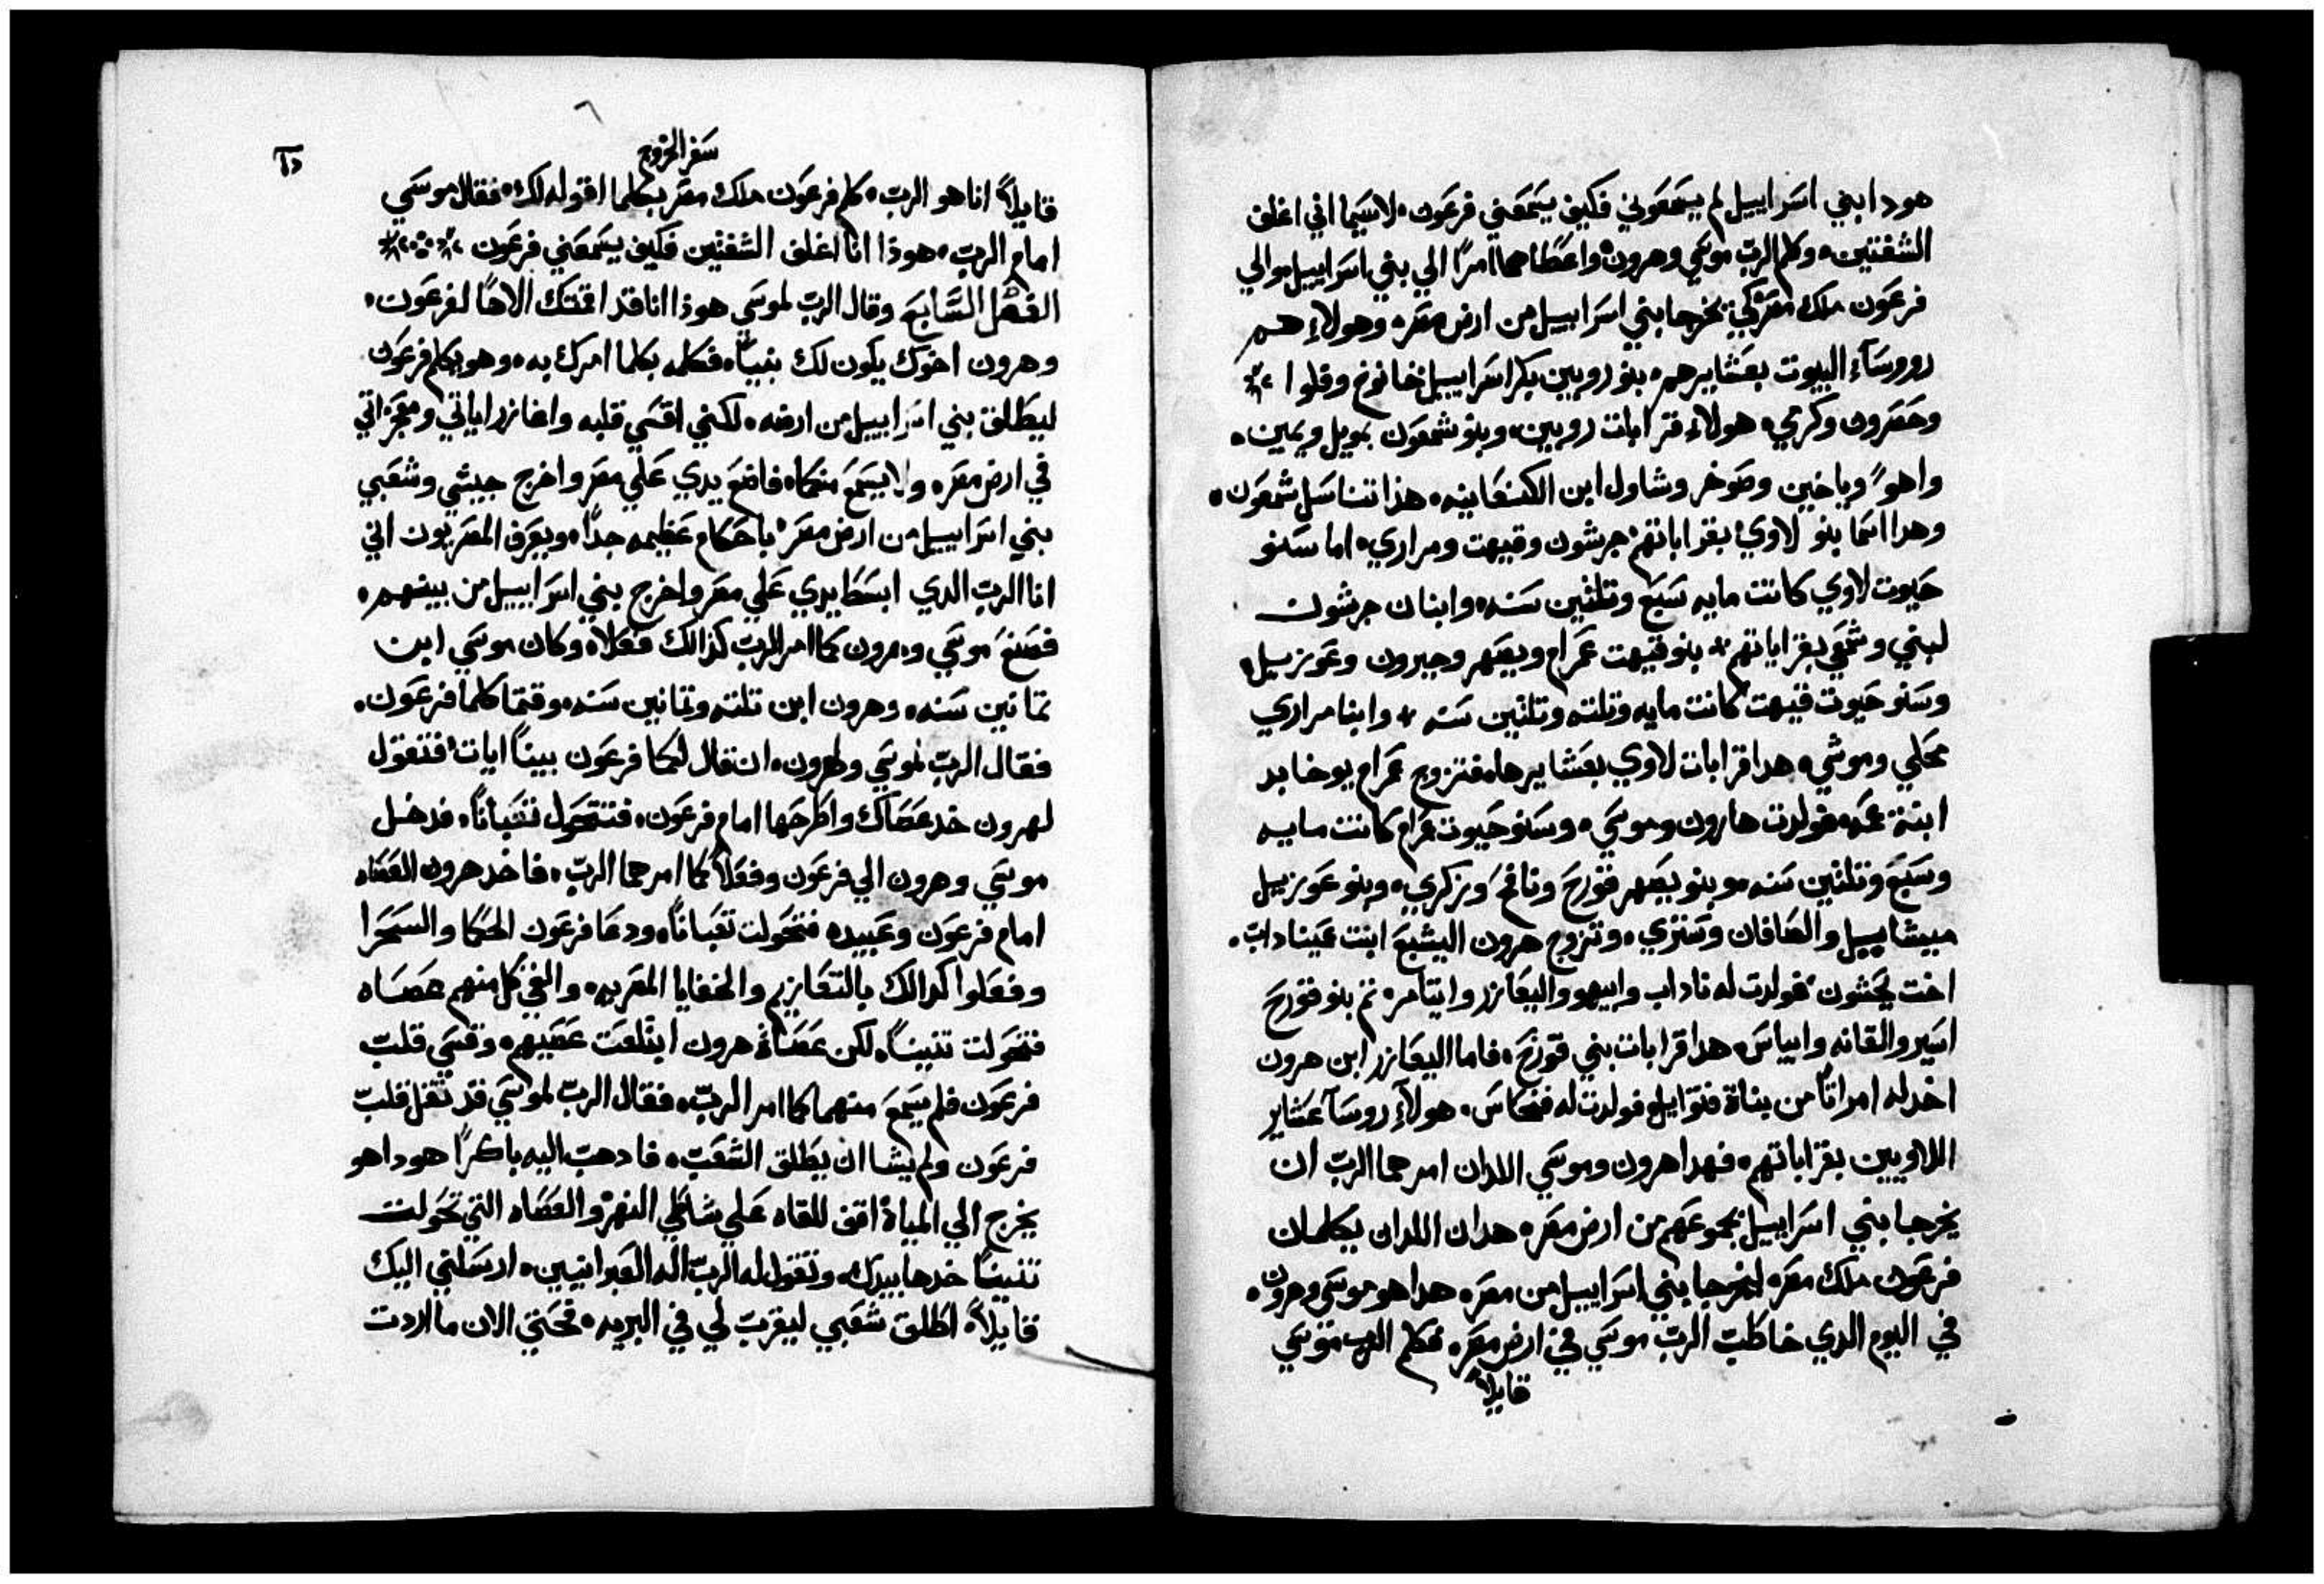 هودا بني اسراييل لم يسمعوني فكيف يسمعني فرعون، لاسيما اني اغلف
الشفتين، وكلم الرب موسي وهرون واعطاهما امرًا الي بني اسراييل والي
فرعون ملك مصر كي يخرجا بني اسراييل من ارض مصر، وهولاء هم
روسآء البيوت بعشايرهم، بنو روبين بكر اسراييل خانوخ وفلوا
وحصرون وكرمي، هولاء قرابات روبين، وبنو شمعون يمويل ويمين،
واهوً وياخين وصوخر وشاول ابن الكنعانيه، هذا تناسل شمعون،
وهدا اسما بنو لاوي بقراباتهم جرشون وقيهت ومراري، اما سنو
حيوت لاوي كانت مايه سبع وتلثين سنه، وابنان جرشون
لبني وشمعي بقراباتهم، بنو قيهت عمرام ويصهر وحبرون وعوزييل،
وسنو حيوت قيهت كانت مايه وتلته وتلثين سنه، وابنا مراري
محلي وموشي، هدا قرابات لاوي بعشايرها، فتزوج عمرام يوخابد
ابنة عمه فولدت هارون وموسي، وسنو حيوت عمرام كانت مايه
وسبع وتلثين سنه، وبنو يصهر قورح ونافح وزكري، وبنو عوزييل
ميشاييل والصافان وستري، وتزوج هرون اليشبع ابنت عيناداب،
اخت نحشون، فولدت له ناداب وابيهو واليعازر وايتامر، ثم بنو قورح
اسير والقانه وابياس، هدا قرابات بني قورح، فاما اليعازر ابن هرون
اخد له امراتًا من بناة فوتاييل فولدت له فنحاس، هولآء روسآ عشاير
اللاويين بقراباتهم، فهدا هرون وموسي اللدان امرهما الرب ان
يخرجا بني اسراييل بجموعهم من ارض مصر، هدان اللدان يكلمان
فرعون ملك مصر، ليخرجا بني اسراييل من مصر، هدا هو موسي وهرون،
في اليوم الدي خاطب الرب موسي في ارض مصر، فكلم الرب موسي
قايلاً
سفر الخروج
قايلاً انا هو الرب، كلم فرعون ملك مصر بكلما اقوله لك، فقال موسي
امام الرب، هوذا انا اغلف الشفتين فكيف يسمعني فرعون
الفصل السابع وقال الرب لموسي هوذا انا قد اقمتك الاهًا لفرعون،
وهرون اخوك يكون لك نبيًا، فكلمه بكلما امرك به، وهو يكلم فرعون
ليطلق بني اسراييل من ارضه، لكني اقسي قلبه واغازر اياتي ومعجزاتي
في ارض مصر، ولا يسمع منكما، فاضع يدي علي مصر واخرج جيشي وشعبي
بني اسراييل من ارض مصر باحكام عظيمه جدًا، ويعرف المصريون اني
انا الرب الدي ابسط يدي علي مصر واخرج بني اسراييل من بينهم،
فصنع موسي وهرون كما امر الرب كذالك فعلا، وكان موسي ابن
تمانين سنه، وهرون ابن تلته وتمانين سنه، وقتما كلما فرعون،
فقال الرب لموسي ولهرون، ان قال لكما فرعون بينا ايات، فتقول
لهرون خد عصاك واطرحها امام فرعون، فتتحول تعبانًا، فدخل
موسي وهرون الي فرعون وفعلا كما امرهما الرب، فاخد هرون العصاه
امام فرعون وعبيده فتحولت تعبانًا، ودعا فرعون الحكما والسحرا
وفعلوا كدالك بالتعازيم والخفايا المصريه، والقي كل منهم عصاه
فتحولت تنينًا، لكن عصاة هرون ابتلعت عصيهم، وقسي قلب
فرعون فلم يسمع منهما كما امر الرب، فقال الرب لموسي قد تقل قلب
فرعون ولم يشا ان يطلق الشعب، فادهب اليه باكرًا هودا هو
يخرج الي المياة، اقف للقاه علي شاطي النهر، والعصاه التي تحولت
تنينًا خدها بيدك، وتقول له الرب اله العبرانيين، ارسلني اليك
قايلاً، اطلق شعبي ليقرب لي في البريه، فحتي الان ما اردت